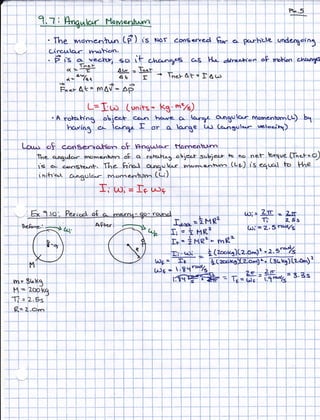 Pg. 5
9.7: Angular Momentum
• The momentum (p⃗) is NOT conserved for a particle undergoing
circular motion.
• p⃗ is a vector, so it changes as the direction of motion changes
α = τnet/I
α = Δω/Δt
Δω/Δt = τnet/I → τnet Δt = I Δω
F⃗net Δt = mΔv⃗ = Δp⃗
L = Iω (units - kg·m²/s)
• A rotating object can have a large angular momentum (L) by
having a large I or a large ω (angular velocity)
Law of conservation of Angular Momentum
The angular momentum of a rotating object subject to no net torque (τnet = 0)
is a constant. The final angular momentum (Lf) is equal to the
initial angular momentum (Li)
Ii ωi = If ωf
Ex 9.10: Period of a merry-go-round
Before: ωi
After: ωf
M
R
m = 36kg
M = 200kg
Ti = 2.5s
R = 2.0m
Idisk = ½MR²
Ii = ½ MR²
If = ½ MR² + mR²
ωi = 2π/Ti = 2π/2.5s
ωi = 2.5 rad/s
ωf = Ii·ωi/If = ½(200kg)(2.0m)² · 2.5 rad/s / ½(200kg)(2.0m)² + (36kg)(2.0m)²
ωf = 1.84 rad/s
Tf = 2π/ωf = 2π/1.9 rad/s = 3.3s